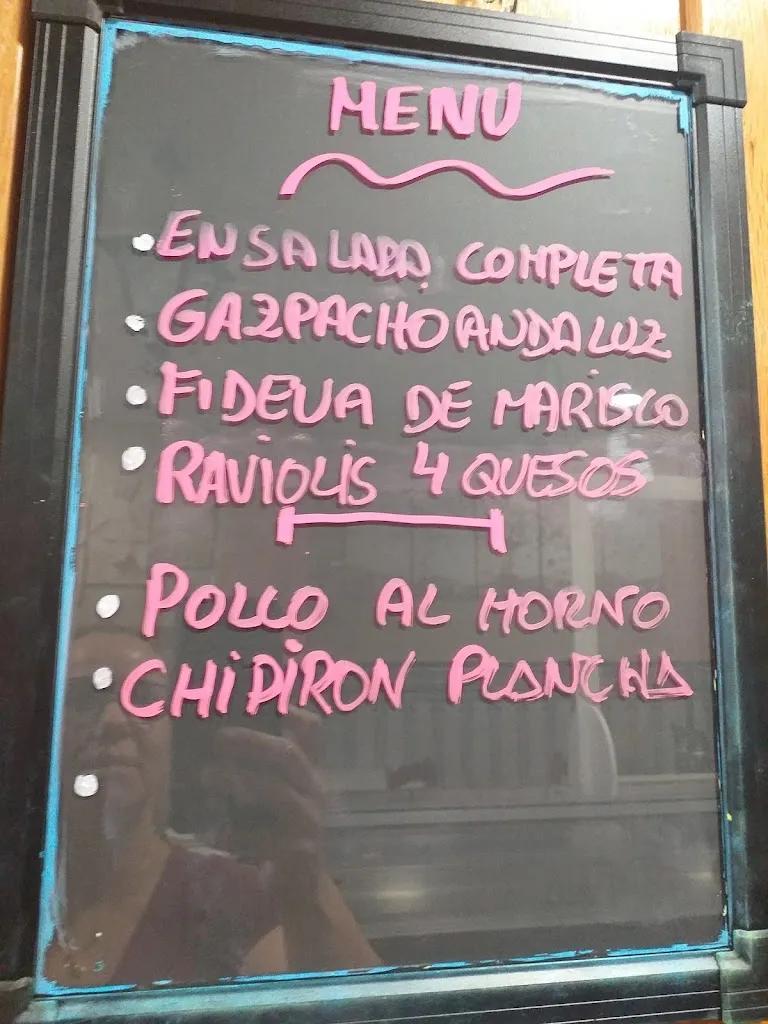 MENU
ENSALADA COMPLETA
GAZPACHO ANDALUZ
FIDEUA DE MARISCO
RAVIOLIS 4 QUESOS
POLLO AL HORNO
CHIPIRON PLANCHA